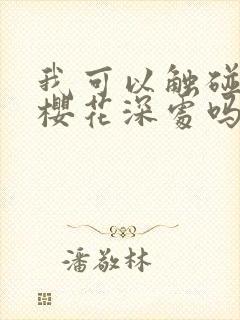 我可以触碰
樱花深处吗
潘敬林